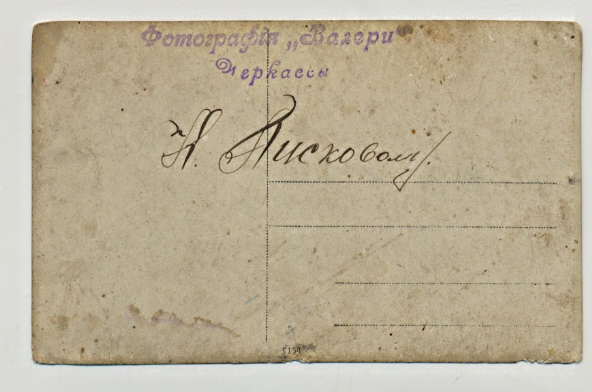 Фотографія „Валери“
Черкассы
Н. Писковому.